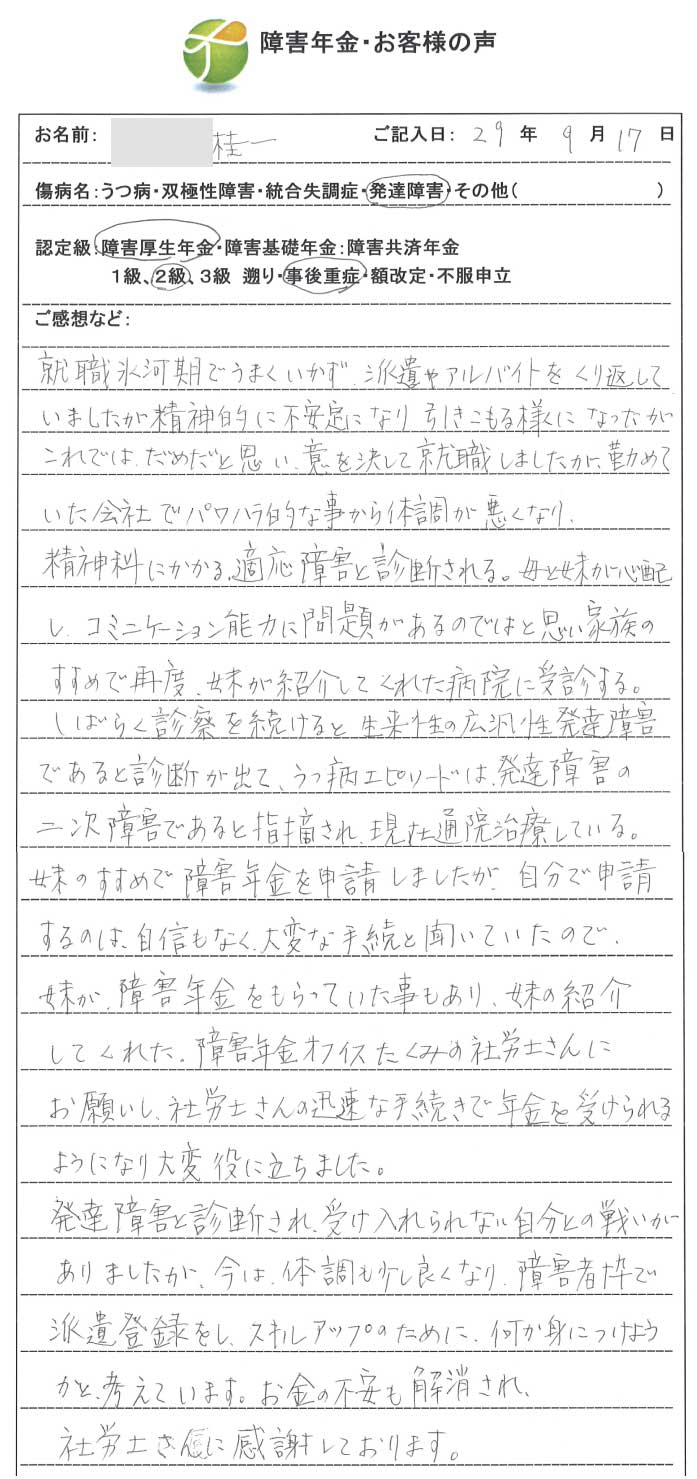 障害年金・お客様の声
お名前: 桂一 ご記入日: 29 年 9 月 17 日
傷病名:うつ病・双極性障害・統合失調症・発達障害・その他( )
認定級:障害厚生年金・障害基礎年金:障害共済年金
1級、2級、3級 遡り・事後重症・額改定・不服申立
ご感想など:
就職氷河期でうまくいかず、派遣やアルバイトをくり返して
いましたが精神的に不安定になり引きこもる様になったが
これでは、だめだと思い、意を決して就職しましたが、勤めて
いた会社でパワハラ的な事から体調が悪くなり、
精神科にかかる。適応障害と診断される。母と妹が心配
し、コミニケーション能力に問題があるのではと思い家族の
すすめで再度、妹が紹介してくれた病院に受診する。
しばらく診察を続けると生来性の広汎性発達障害
であると診断が出て、うつ病エピソードは、発達障害の
二次障害であると指摘され、現在通院治療している。
妹のすすめで障害年金を申請しましたが、自分で申請
するのは、自信もなく、大変な手続と聞いていたので、
妹が、障害年金をもらっていた事もあり、妹の紹介
してくれた、障害年金オフィスたくみの社労士さんに
お願いし、社労士さんの迅速な手続きで年金を受けられる
ようになり大変役に立ちました。
発達障害と診断され、受け入れられない自分との戦いが
ありましたが、今は、体調も少し良くなり、障害者枠で
派遣登録をし、スキルアップのために、何か身につけよう
かと、考えています。お金の不安も解消され、
社労士さんに感謝しております。